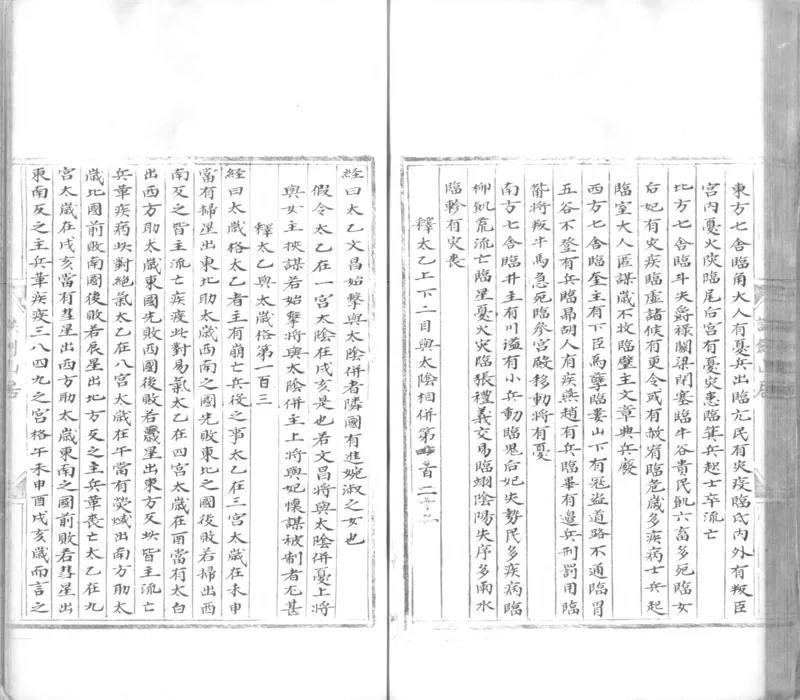 東方七舍臨角大人有憂兵出臨亢民有炎疫臨氐內外有叛臣
宮內憂火災臨尾后宮有憂灾患臨箕兵起士卒流亡
北方七舍臨斗失爵祿關梁閉塞臨牛谷貴民飢六畜多死臨女
后妃有灾疾臨虛諸侯有更令或有赦宥臨危歲多疾病士兵起
臨室大人匿謀歲不收臨壁主文章典兵廢
西方七舍臨奎主有下臣馬孽臨婁山下有冠盜道路不通臨胃
五谷不登有兵臨昴胡人有疾燕趙有兵臨畢有邊兵刑罰用臨
觜將叛牛馬急死臨參宮殿移動將有憂
南方七舍臨井主有川溢有小兵動臨鬼后妃失勢民多疾病臨
柳飢荒流亡臨星憂火灾臨張禮義交易臨翊陰陽失序多雨水
臨軫有灾喪
釋太乙上下二目與太陰相併第一百二
經曰太乙文昌始擊與太陰併者隣國有進婉淑之女也
假令太乙在一宮太陰在戌亥是也若文昌將與太陰併憂上將
與女主挾謀若始擊將與太陰併主上將與妃懷謀被制者尤甚
釋太乙與太歲格第一百三
經曰太歲格太乙者主有崩亡兵役之事太乙在三宮太歲在未申
當有掃星出東北助太歲西南之國先敗東北之國後敗若掃出西
南反之皆主流亡疾疫此對易氣太乙在四宮太歲在酉當有太白
出西方助太歲東國先敗西國後敗若歲星出東方反災皆主流亡
兵革疾病災對絕氣太乙在八宮太歲在午當有熒惑出南方助太
歲北國前敗南國後敗若辰星出北方反之主兵革喪亡太乙在九
宮太歲在戌亥當有彗星出西方助太歲東南之國前敗若彗星出
東南反之主兵革疾疫三八四九之宮格午未申酉戌亥歲而言之